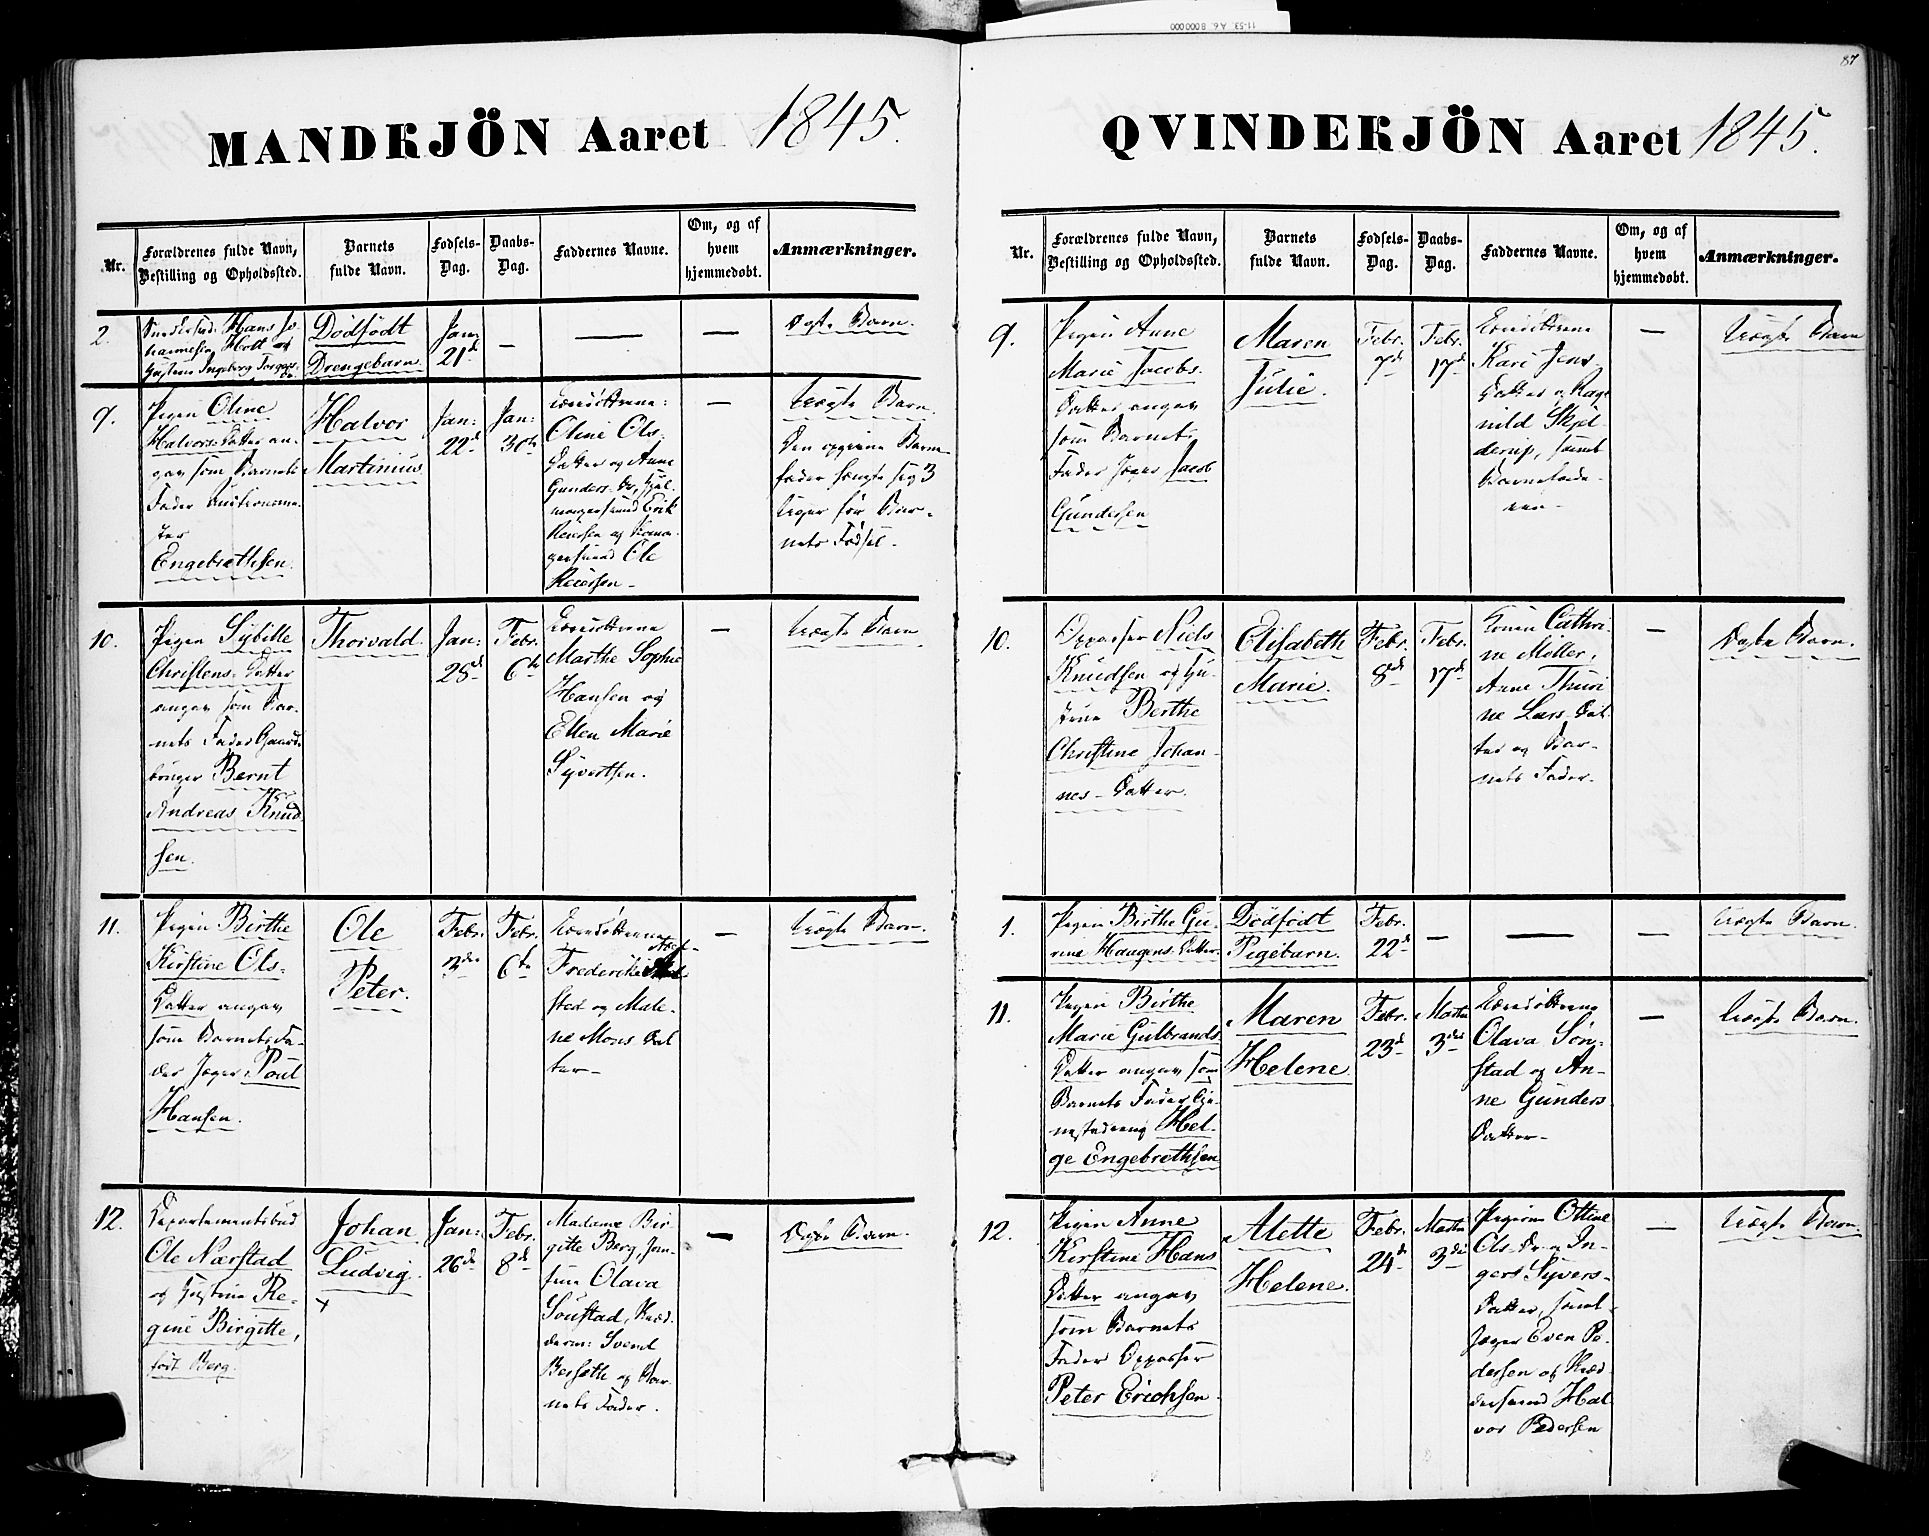 11-53. A6. 8000000
87
MANDKJÖN Aaret 1845.
Nr.
Forældrenes fulde Navn,
Bestilling og Opholdssted.
Barnets
fulde Navn.
Fødsels-
Dag.
Daabs-
Dag.
Faddernes Navne.
Om, og af
hvem
hjemmedøbt.
Anmærkninger.
2.
Hans Jo-
hannesen Holt og
Hustrue Ingeborg
Dødfødt
Drengebarn
Jan:
21de
—
—
—
Ægte Barn.
9.
Pigen Oline
Halvors-Datter an-
gav som Barnets
Fader
Engebrethsen.
Halvor
Martinius
Jan:
22de
Jan:
30te
Oline Ols-
Datter og Anne
Gunders-Dr,
Erik
Reiersen og
Ole
Reiersen
—
Uægte Barn.
Den opgivne Barne-
fader 3
Uger før Bar-
nets Fødsel.
10.
Pigen Sybille
Christens-Datter
angav som Bar-
nets Fader Gaard-
bruger Bernt
Andreas Knud
sen.
Thorvald.
Jan:
28de
Febr.
6te
Marthe Sophie
Hansen og
Ellen Marie
Syvertsen.
—
Uægte Barn
11.
Pigen Birthe
Kirstine Ols-
Datter angav
som Barnets Fa-
der Jæger Poul
Hansen.
Ole
Peter.
Febr.
3die
Febr.
6te
Frederikke
sted og Male-
ne Mons Dat
ter
—
Uægte Barn.
12.
Departementsbud
Ole Nærstad
og Hustrue Re-
gine Birgitte,
født Berg.
Johan
Ludvig.
+
Jan:
26de
Febr.
8de
Madame Bir
gitte Berg, Jom-
frue Olava
Soustad,
Svend
og Bar-
nets Fader.
—
Ægte Barn.
QVINDEKJÖN Aaret 1845.
Nr.
Forældrenes fulde Navn,
Bestilling og Opholdssted.
Barnets
fulde Navn.
Fødsels-
Dag.
Daabs-
Dag.
Faddernes Navne.
Om, og af
hvem
hjemmedøbt.
Anmærkninger.
9.
Pigen Anne
Marie Jacobs-
Datter angav
som Barnets
Fader Jæger Jacob
Gundersen
Maren
Julie.
Febr.
7de
Febr.
17de
Kari Jens-
Datter og Rag-
nild Skjel-
derup, samt
Barnefade-
ren
Uægte Barn
10.
Oppasser Niels
Knudsen og Hu-
strue Berthe
Christine Johan-
nes-Datter.
Elisabeth
Marie.
Febr.
8de
Febr.
17de
Konen Cathri-
ne Møller,
Anne Thuri
ne Lars-Dat-
ter og Bar-
nets Fader.
—
Ægte Barn.
1.
Pigen Birthe Gu-
rine Haagens-Datter
Dødfødt
Pigebarn.
Febr.
22de
—
—
—
Uægte Barn.
11.
Pigen Birthe
Marie Gulbrands
Datter angav som
Barnets Fader
Hel-
ge Engebrethsen
Maren
Helene.
Febr.
23de
Marts
3die
Olava Søn-
stad og An-
ne Gunders-
Datter
—
Uægte Barn.
12.
Pigen Anne
Kirstine Hans
Datter angav
som Barnets
Fader Oppasser
Peter Erichsen.
Alette
Helene.
Febr.
24de
Marts
3die
Pigerne Ottine
Ols-Dr. og In-
gers Syvers-
Datter, samt
Jæger Even Pe-
dersen og
Hal
vor Pedersen
—
Uægte Barn.